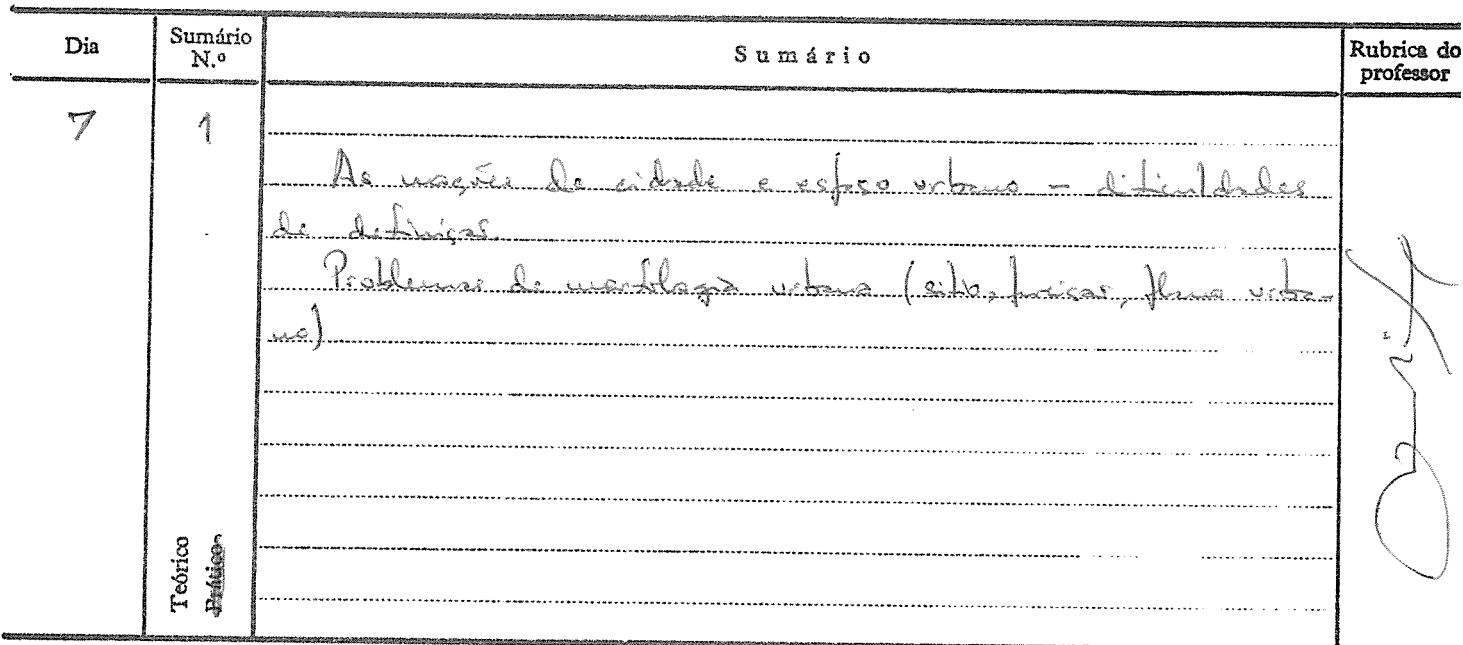 Dia
Sumário N.º
Sumário
Rubrica do professor
7
1
As noções de cidade e espaço urbano – dificuldades
de definição.
Problemas de morfologia urbana (sítio, posição, plano urba-
no)
Teórico
Prático